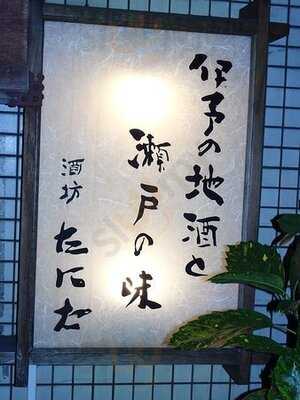 伊予の地酒と
瀬戸の味
酒坊
たにた